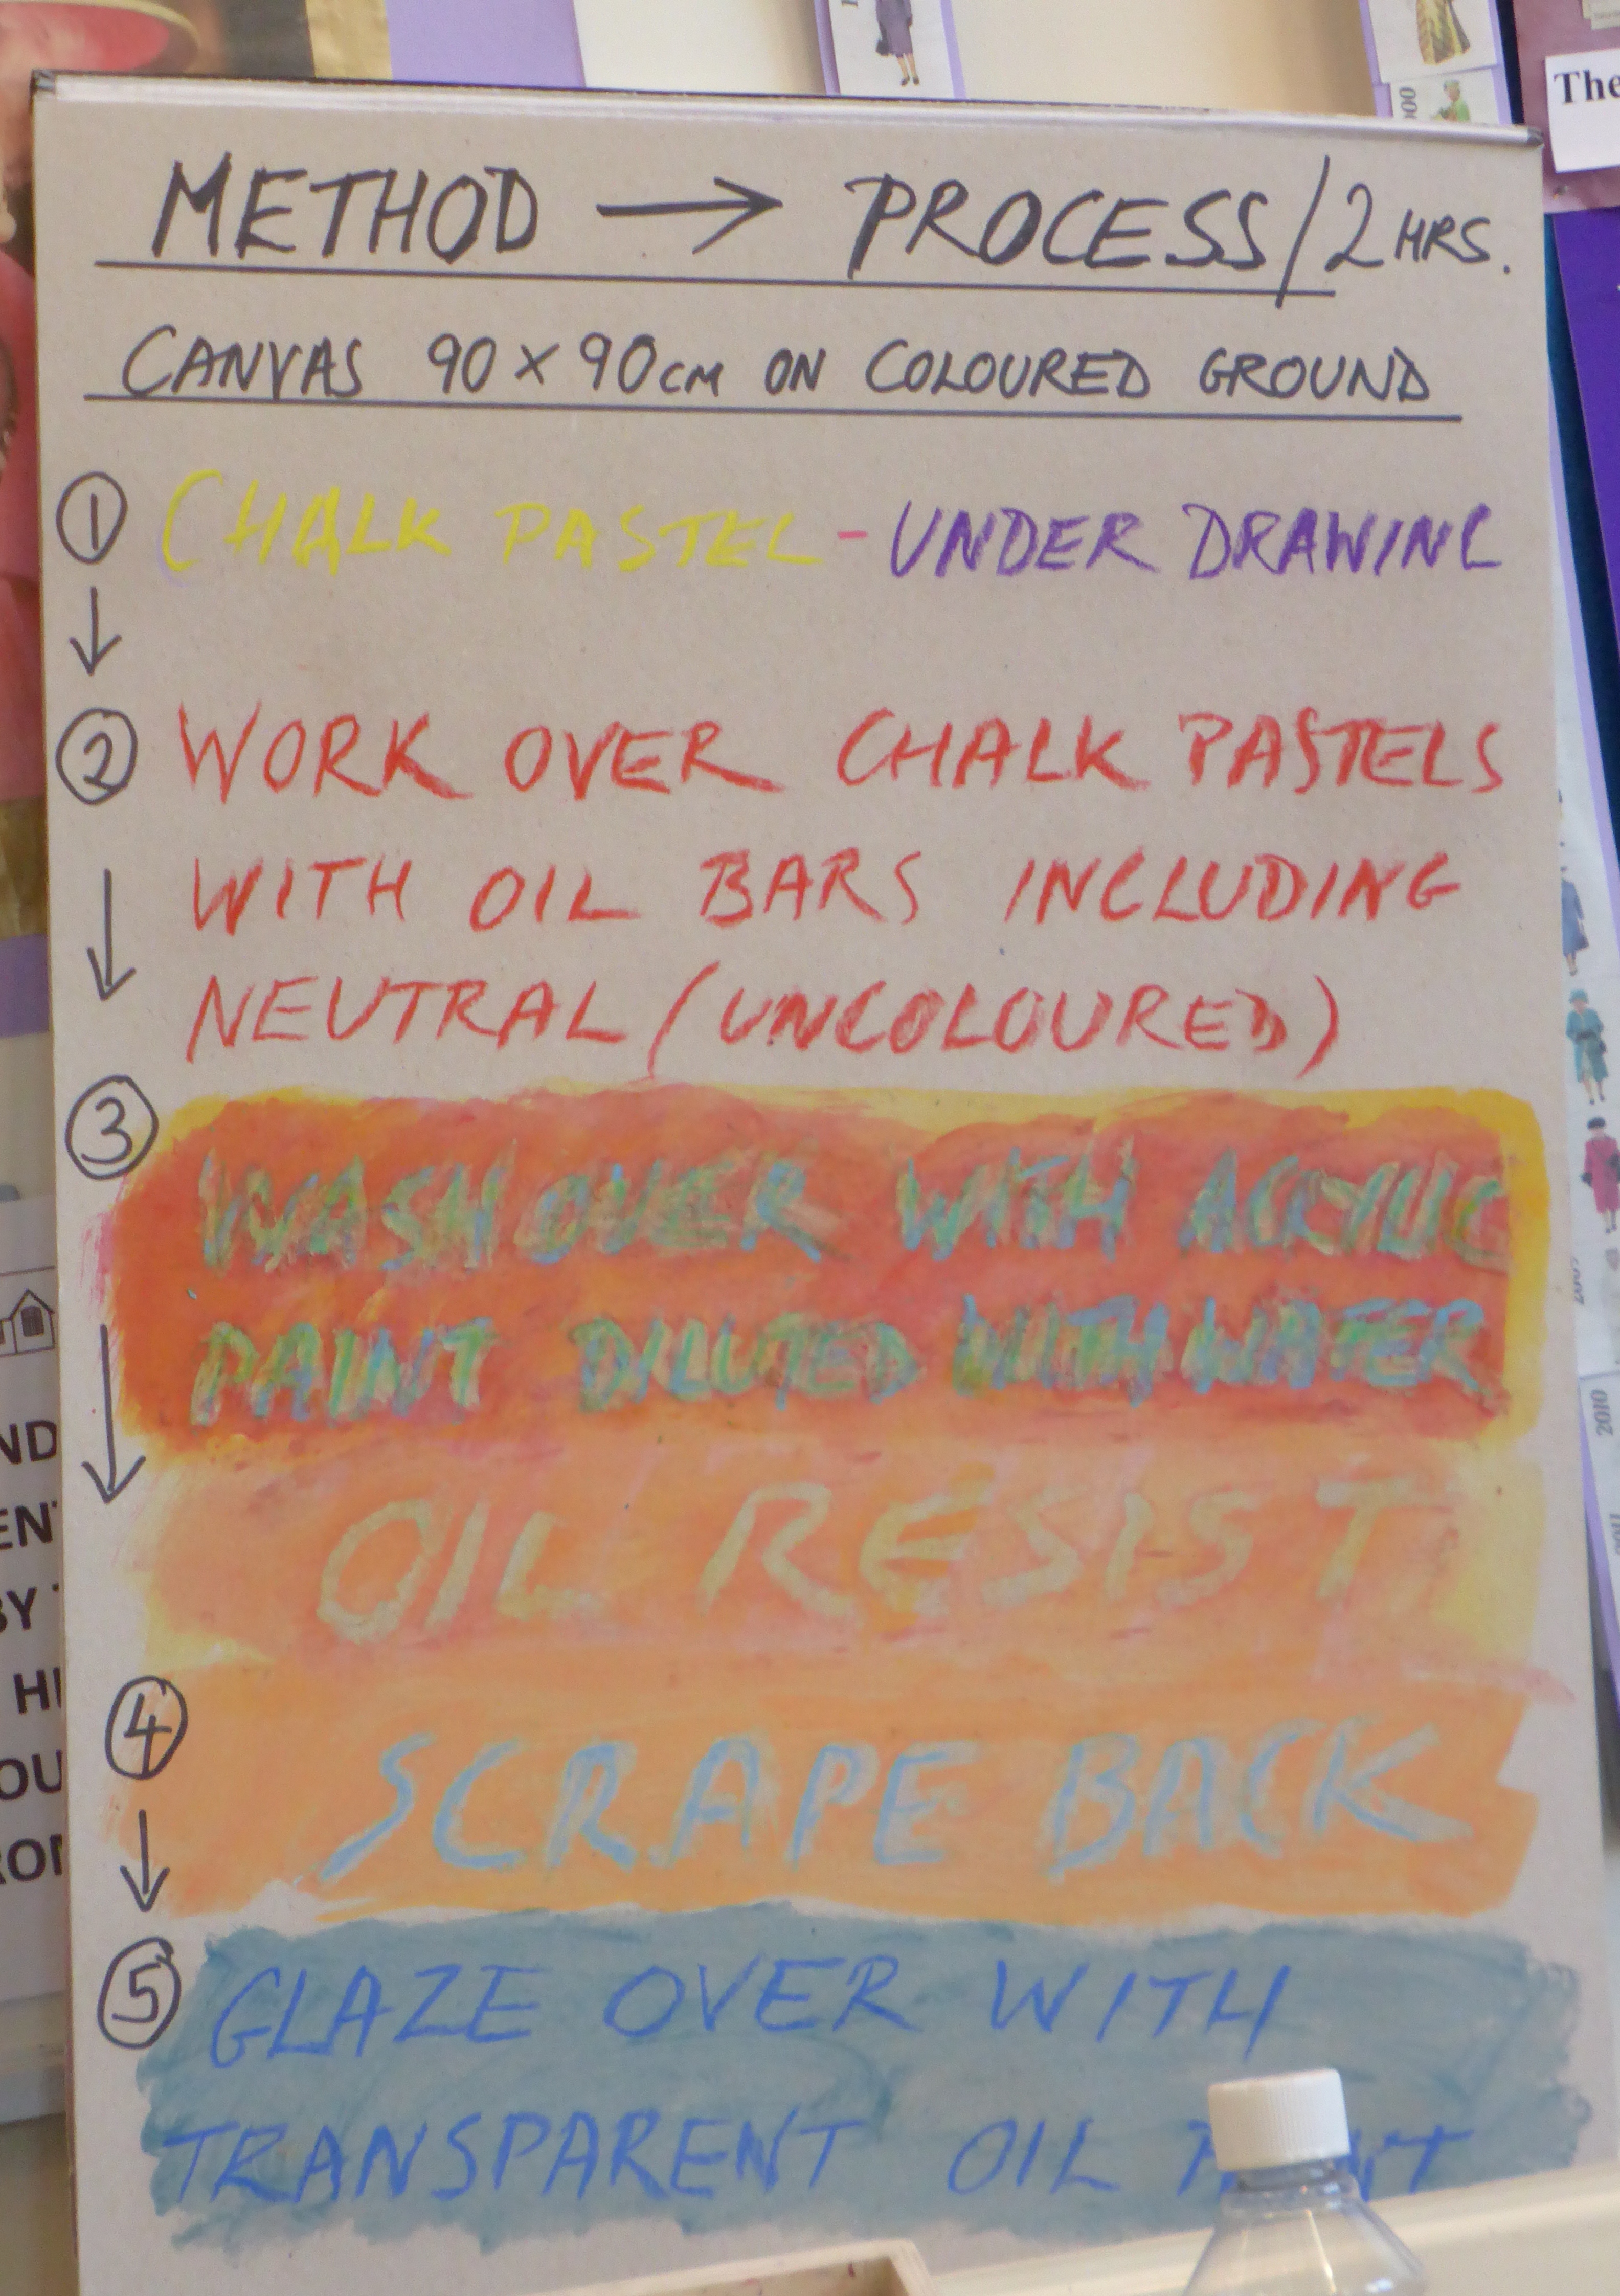 The
METHOD → PROCESS/2 HRS.
CANVAS 90 x 90cm ON COLOURED GROUND
1 CHALK PASTEL - UNDER DRAWING
2 WORK OVER CHALK PASTELS
WITH OIL BARS INCLUDING
NEUTRAL (UNCOLOURED)
3 WASH OVER WITH ACRYLIC
PAINT DILUTED WITH WATER
OIL RESIST
4 SCRAPE BACK
5 GLAZE OVER WITH
TRANSPARENT OIL PAINT
2010